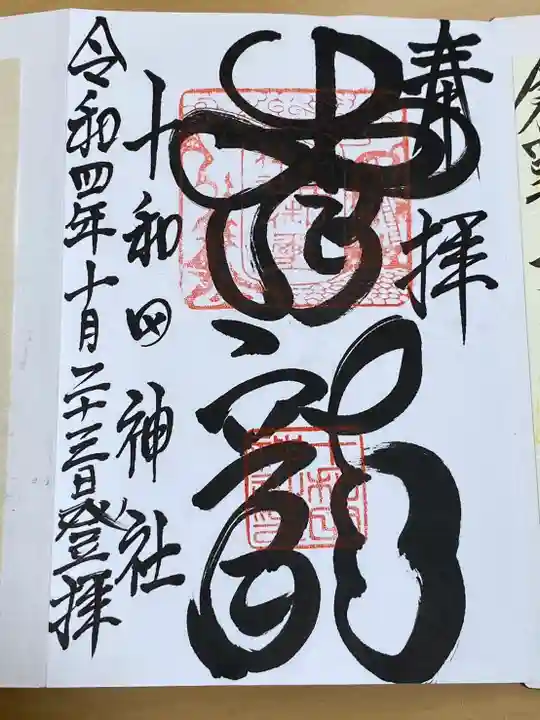 奉拝
青龍
十和田神社
令和四年十月二十三日登拝